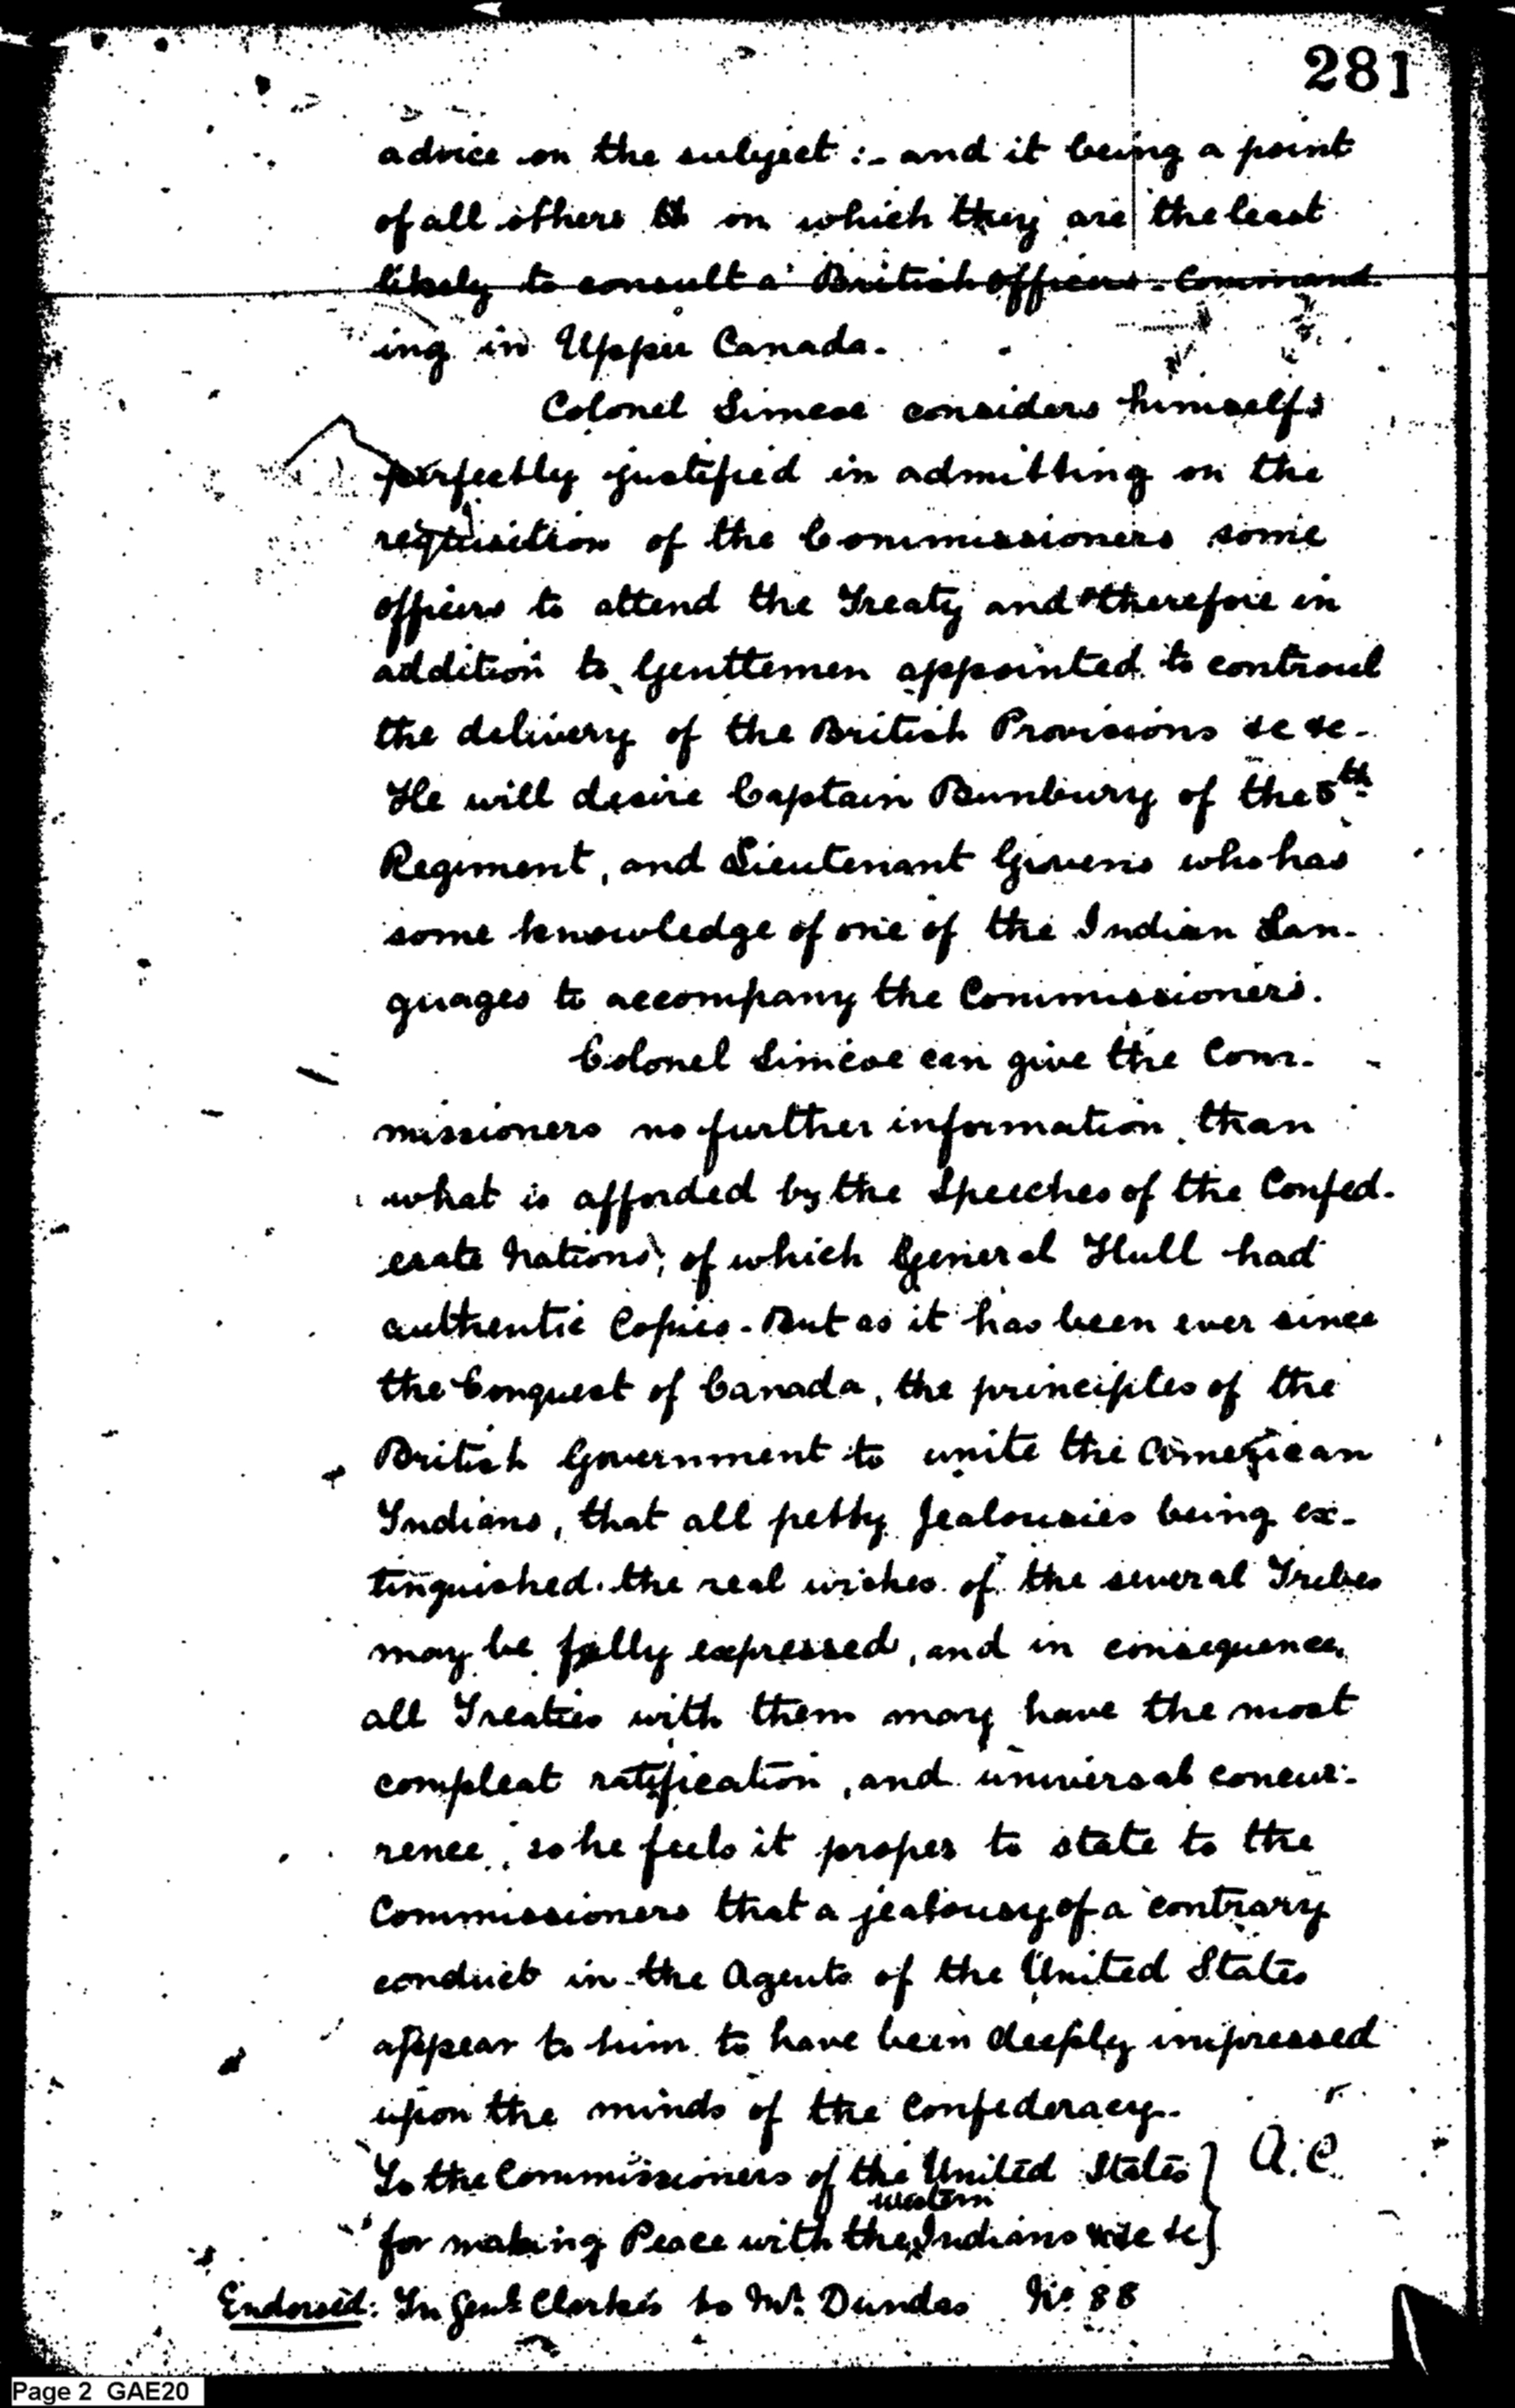 281
advice on the subject :- and it being a point
of all others on which they are the least
likely to consult a British officers - Command
ing in Upper Canada.
Colonel Simcoe considers himself
perfectly justified in admitting on the
requisition of the Commissioners some
officers to attend the Treaty and therefore in
addition to Genttemen appointed to controul
the delivery of the British Provisions &c &c -
He will desire Captain Bunbury of the 5th
Regiment, and Lieutenant Givens who has
some knowledge of one of the Indian Lan-
guages to accompany the Commissioners.
Colonel Simcoe can give the Com-
missioners no further information than
what is afforded by the Speeches of the Confed-
erate Nations, of which General Hull had
authentic Copies - But as it has been ever since
the Conquest of Canada, the principles of the
British Government to unite the American
Indians, that all petty Jealousies being ex-
tinguished the real wishes of the several Tribes
may be fully expressed, and in consequence,
all Treaties with them may have the most
compleat ratification, and universal concur-
rence, so he feels it proper to state to the
Commissioners that a jealousy of a contrary
conduct in the Agents of the United States
appear to him to have been deeply impressed
upon the minds of the Confederacy.
To the Commissioners of the United States } A.C.
western
for making Peace with the Indians &c &c }
Endorsed: In Genl Clarke's to Mr. Dundas No 88
Page 2 GAE20